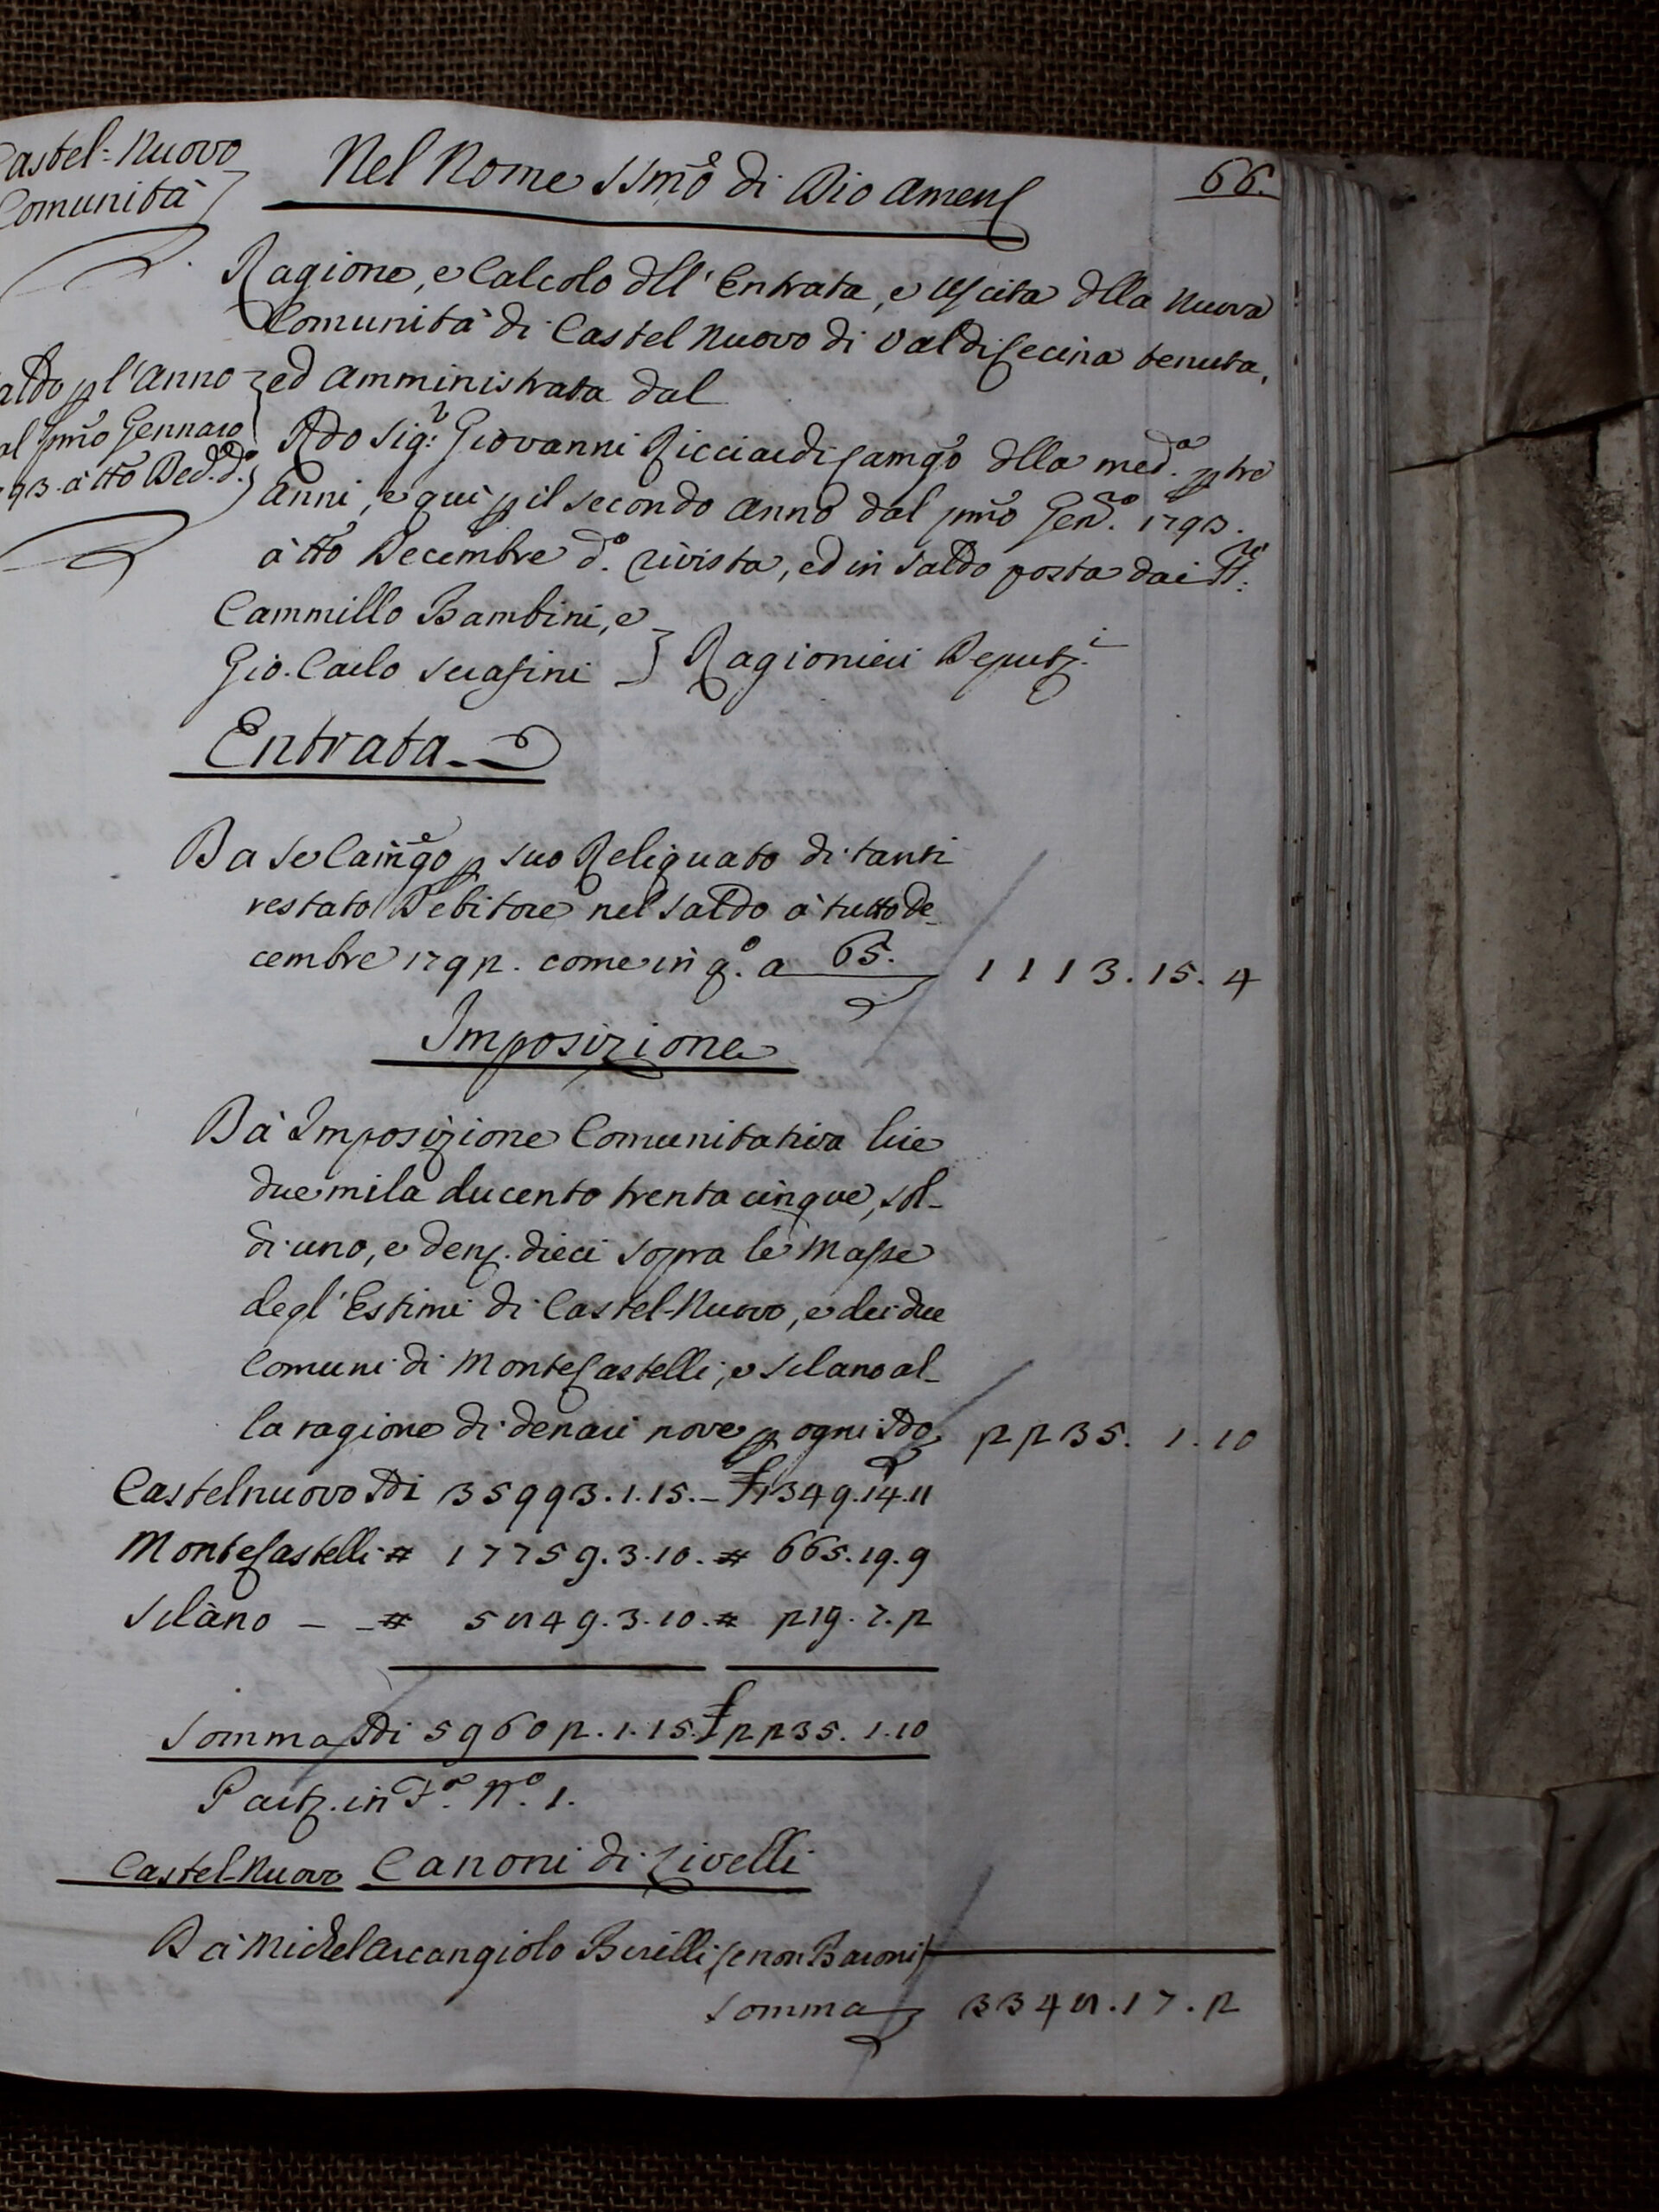 Castel=Nuovo
Comunità
66.
Nel Nome SSmo di Dio Amen
Ragione, e Calcolo dll' Entrata, e Uscita dlla Nuova
Comunità di Castel Nuovo di Valdicecina tenuta,
ed Amministrata dal
aldo pl'Anno
al pmo Gennaro
93. a tto Dec. do.
Rdo Sigr. Giovanni Ricciardi Camgo dlla meda. p tre
Anni, e qui p il secondo Anno dal pmo Geno. 1793.
à tto Decembre do. rivista, ed in Saldo posta dai SSri.
Cammillo Bambini, e
Gio. Carlo Serafini
Ragionieri Deputi.
Entrata
Da se Camgo p suo Reliquato di tanti
restato Debitore nel Saldo à tutto De-
cembre 1792. come in qo. a 65. 1113.15.4
Imposizione
Dà Imposizione Comunitativa lire
due mila ducento trenta cinque, sol-
di uno, e denj. dieci sopra le Masse
degl'Estimi di Castel-Nuovo, e dei due
Comuni di MonteCastelli, e Silano al-
la ragione di denari nove p ogni Sdo 2235. 1.10
Castelnuovo Sdi 35993.1.15.- £1349.14.11
MonteCastelli # 17759.3.10. # 665.19.9
Silano - - # 5849.3.10. # 219.7.2
Somma Sdi 59602.1.15. £2235.1.10
Partj. in Fa. No. 1.
Castel-Nuovo Canoni di Livelli
Dà Michelarcangiolo Birilli (e non Baroni)
Somma 3348.17.2